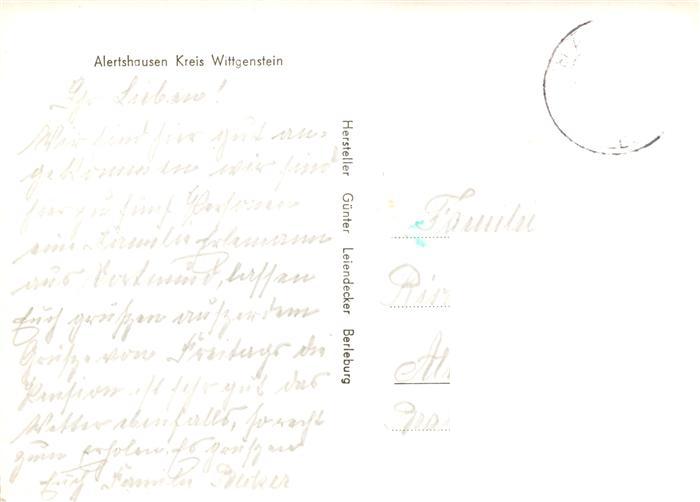 Alertshausen Kreis Wittgenstein
Ihr Lieben!
Wir sind hier gut an-
gekommen wir sind
hier zu fünf Personen
eine Familie Erlemann
aus Dortmund, lassen
Euch grüßen außerdem
Grüße von Freitags die
Pension ist sehr gut das
Wetter ebenfalls, so recht
zum erholen. Es grüßen
Euch Familie
Hersteller Günter Leiendecker Berleburg
Familie